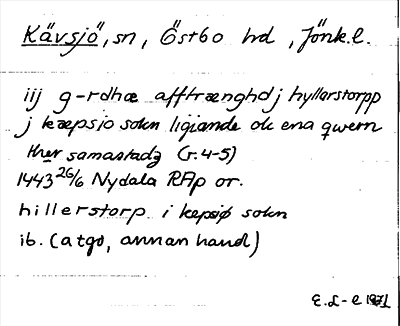 Kävsjö, sn, Östbo hd, Jönk.l.
iij g-rdhæ afftrænghdj hyllerstorpp
j kæepsio sokn ligiande ok ena qwern
thær samastadz (r.4-5)
1443 26/6 Nydala RAp or.
hillerstorp i kepsiø sokn
ib. (atgo, annan hand)
E.L-e 1971